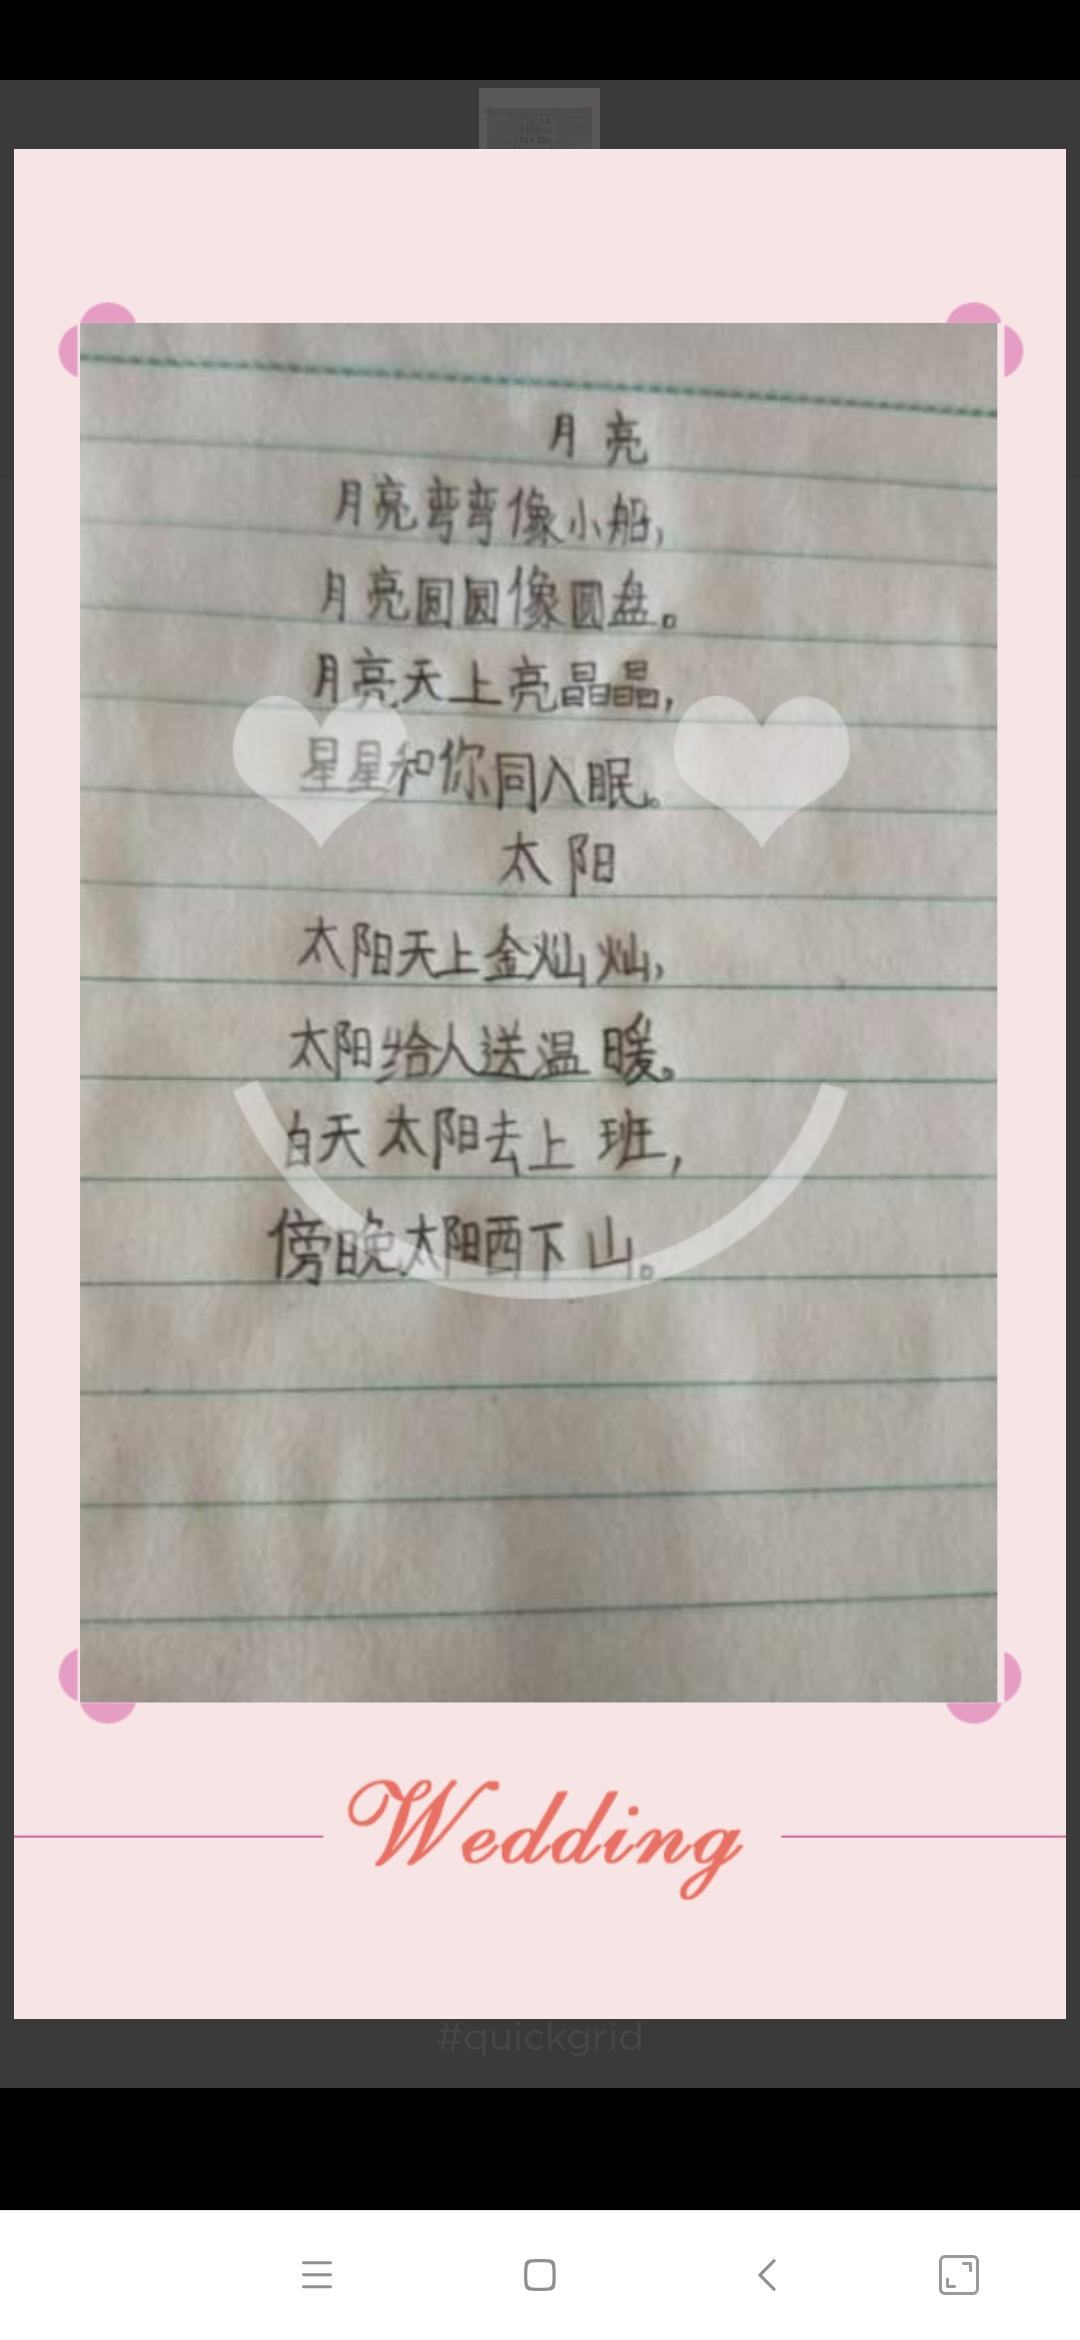 月亮
月亮弯弯像小船，
月亮圆圆像圆盘。
月亮天上亮晶晶，
星星和你同入眠。
太阳
太阳天上金灿灿，
太阳给人送温暖。
白天太阳去上班，
傍晚太阳西下山。
Wedding
#quickgrid